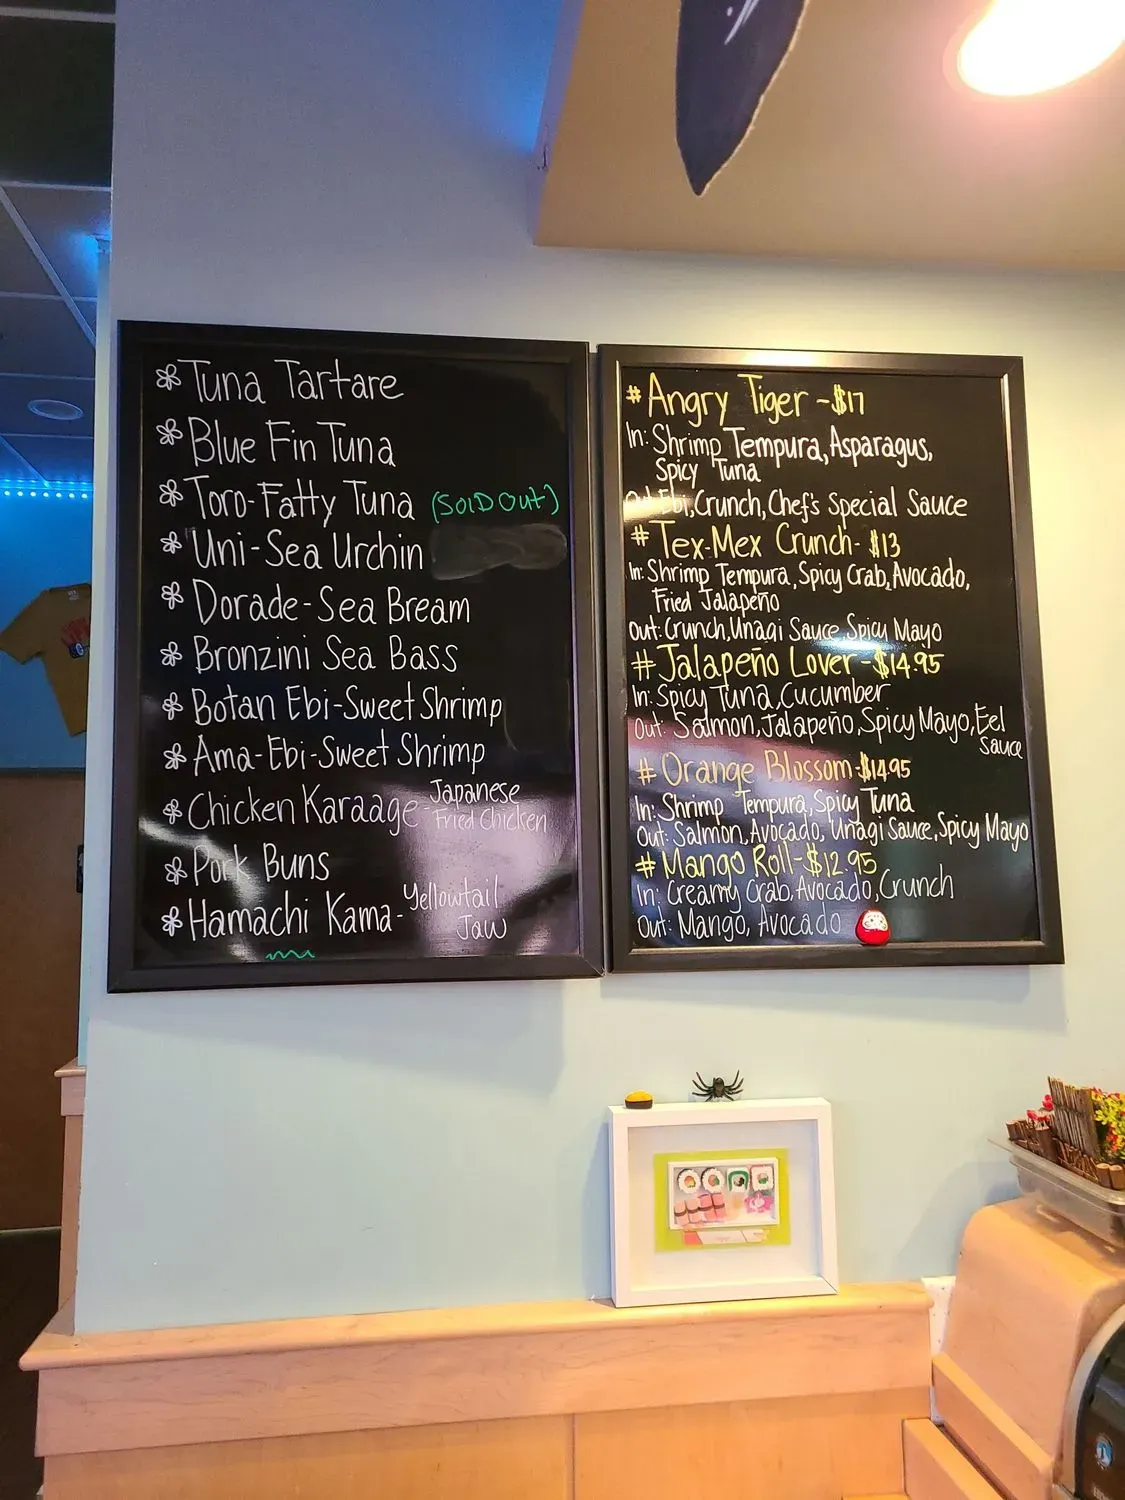 Tuna Tartare
Blue Fin Tuna
Toro-Fatty Tuna (SOLD Out)
Uni-Sea Urchin
Dorade-Sea Bream
Bronzini Sea Bass
Botan Ebi-Sweet Shrimp
Ama-Ebi-Sweet Shrimp
Chicken Karaage-Japanese
Fried Chicken
Pork Buns
Hamachi Kama-Yellowtail
Jaw
# Angry Tiger -$17
In: Shrimp Tempura, Asparagus,
Spicy Tuna
Out: Ebi, Crunch, Chef's Special Sauce
# Tex-Mex Crunch- $13
In: Shrimp Tempura, Spicy Crab, Avocado,
Fried Jalapeño
Out: Crunch, Unagi Sauce, Spicy Mayo
# Jalapeño Lover -$14.95
In: Spicy Tuna, Cucumber
Out: Salmon, Jalapeño, Spicy Mayo, Eel
Sauce
# Orange Blossom-$14.95
In: Shrimp Tempura, Spicy Tuna
Out: Salmon, Avocado, Unagi Sauce, Spicy Mayo
# Mango Roll-$12.95
In: Creamy Crab, Avocado, Crunch
Out: Mango, Avocado